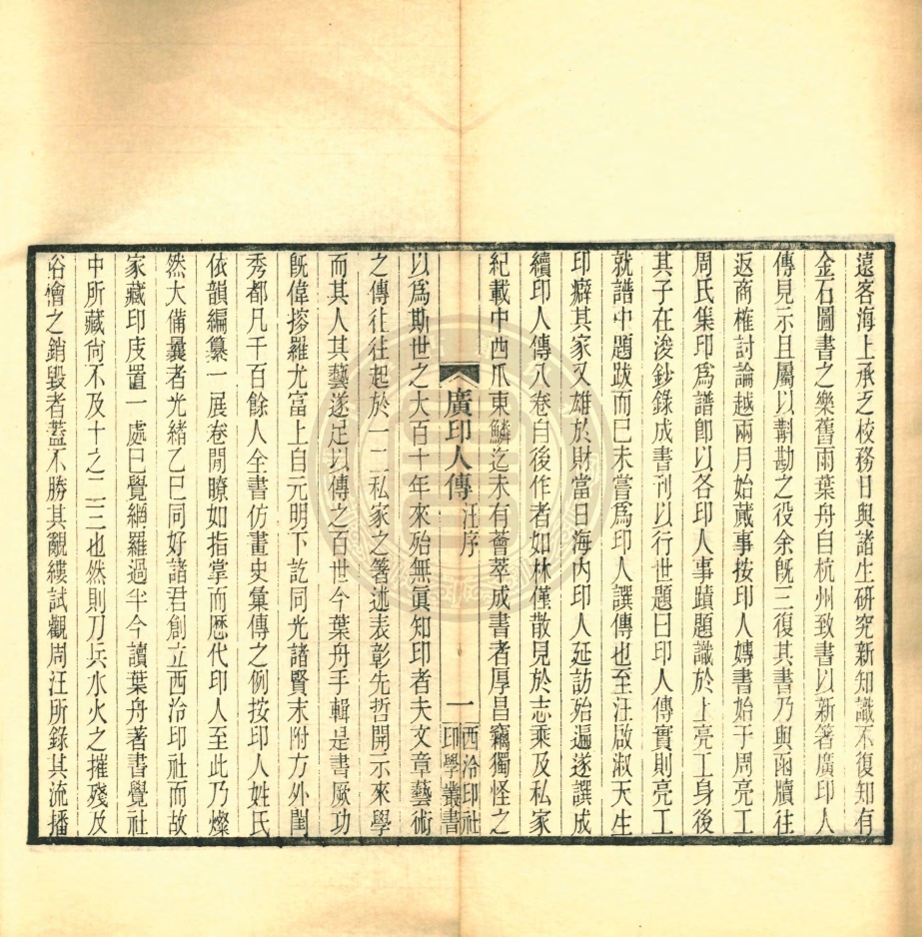 遠客海上承乏校務日與諸生硏究新知識不復知有
金石圖書之樂舊雨葉舟自杭州致書以新箸廣印人
傳見示且屬以斠勘之役余旣三復其書乃與函牘往
返商榷討論越兩月始蕆事按印人傳書始于周亮工
周氏集印爲譜卽以各印人事蹟題識於上亮工身後
其子在浚鈔錄成書刊以行世題曰印人傳實則亮工
就譜中題跋而已未嘗爲印人譔傳也至汪啟淑天生
印癖其家又雄於財當日海內印人延訪殆遍遂譔成
續印人傳八卷自後作者如林僅散見於志乘及私家
紀載中西爪東鱗迄未有薈萃成書者厚昌竊獨怪之
廣印人傳 汪序 一 西泠印社
印學叢書
以爲斯世之大百十年來殆無眞知印者夫文章藝術
之傳往往起於一二私家之箸述表彰先哲開示來學
而其人其藝遂足以傳之百世今葉舟手輯是書厥功
旣偉搜羅尤富上自元明下訖同光諸賢末附方外閨
秀都凡千百餘人全書仿畫史彙傳之例按印人姓氏
依韻編纂一展卷閒瞭如指掌而歷代印人至此乃燦
然大備曩者光緒乙巳同好諸君創立西泠印社而故
家藏印庋置一處已覺網羅過半今讀葉舟著書覺社
中所藏尙不及十之二三也然則刀兵水火之摧殘及
俗僧之銷毀者蓋不勝其覼縷試觀周汪所錄其流播